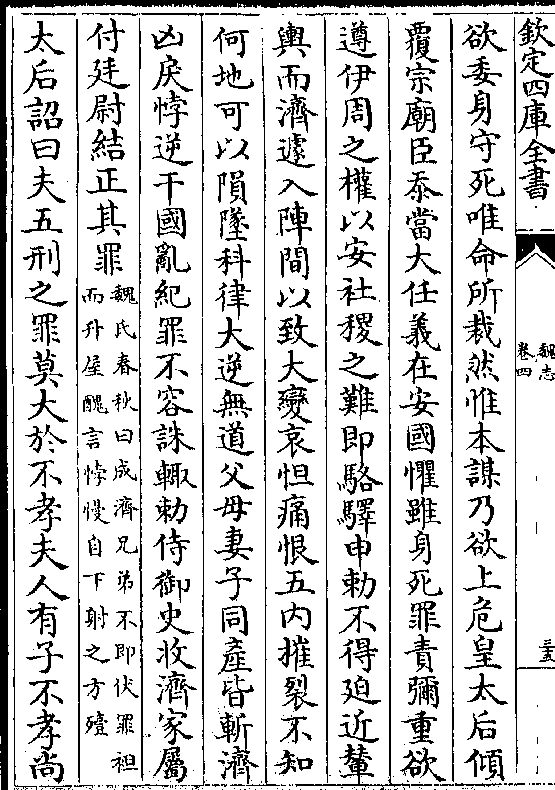 欽定四庫全書
魏志
卷四
三五
欲委身守死唯命所裁然惟本謀乃欲上危皇太后傾
覆宗廟臣忝當大任義在安國懼雖身死罪責彌重欲
遵伊周之權以安社稷之難即駱驛申勅不得迫近輦
輿而濟遽入陣間以致大變哀怛痛恨五内摧裂不知
何地可以隕墜科律大逆無道父母妻子同產皆斬濟
凶戾悖逆干國亂紀罪不容誅輙勅侍御史收濟家屬
付廷尉結正其罪魏氏春秋曰成濟兄弟不即伏罪袒
而升屋醜言悖慢自下射之方殪
太后詔曰夫五刑之罪莫大於不孝夫人有子不孝尚